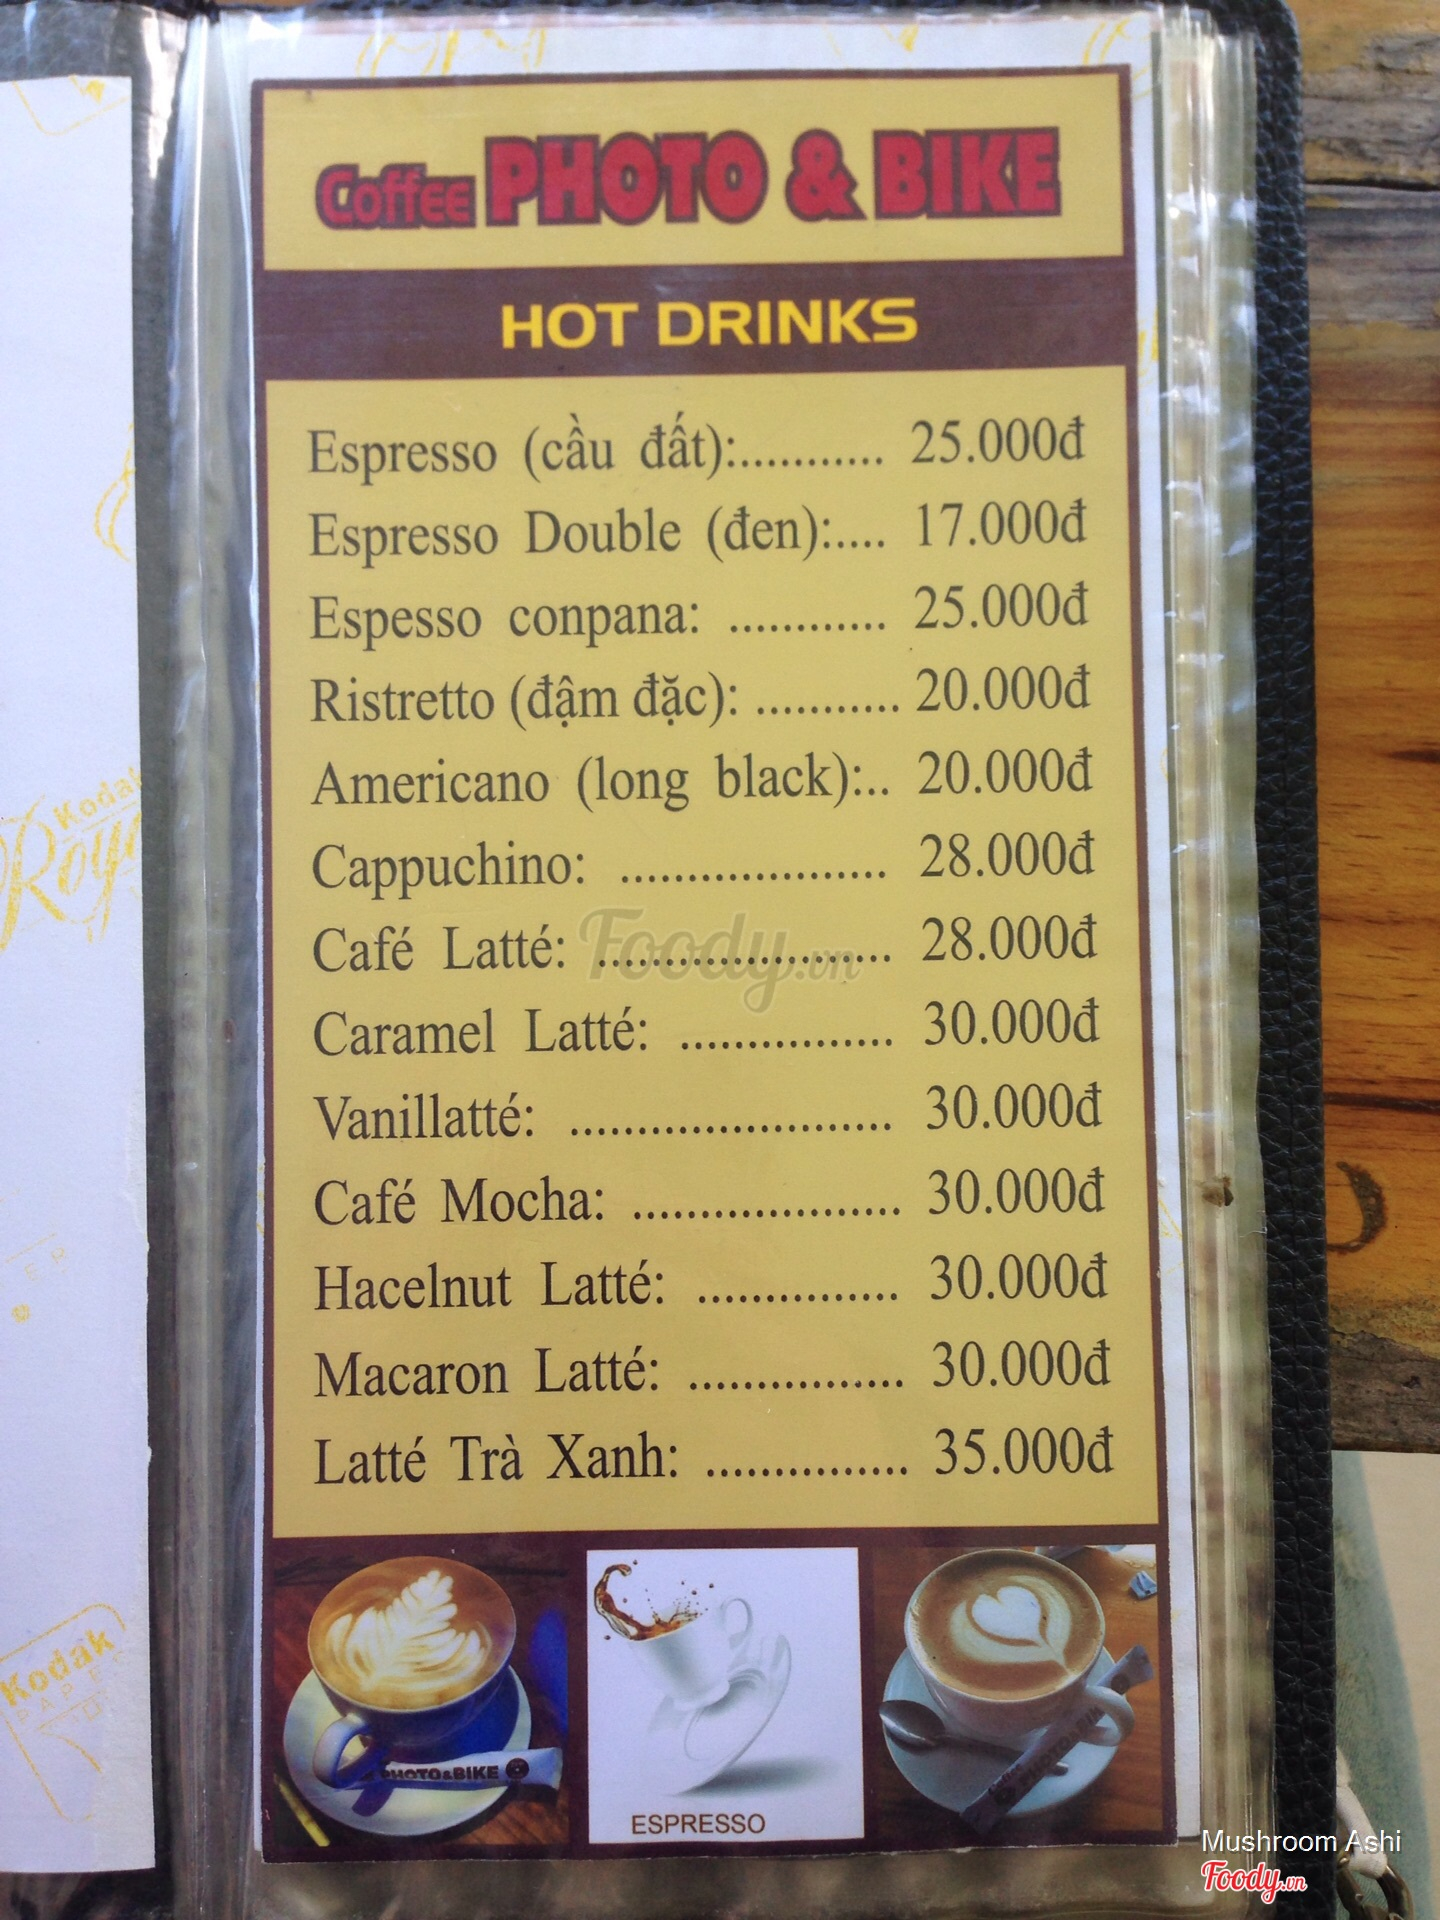 Coffee PHOTO & BIKE
HOT DRINKS
Espresso (cầu đất):........... 25.000đ
Espresso Double (đen):.... 17.000đ
Espesso conpana: ............ 25.000đ
Ristretto (đậm đặc): ........... 20.000đ
Americano (long black):.. 20.000đ
Cappuchino: .................... 28.000đ
Café Latté: ...................... 28.000đ
Caramel Latté: ................ 30.000đ
Vanillatté: ........................ 30.000đ
Café Mocha: .................... 30.000đ
Hacelnut Latté: ............... 30.000đ
Macaron Latté: ................ 30.000đ
Latté Trà Xanh: ............... 35.000đ
Foody.vn
PHOTO&BIKE
ESPRESSO
Kodak
Kodak
Mushroom Ashi
Foody.vn